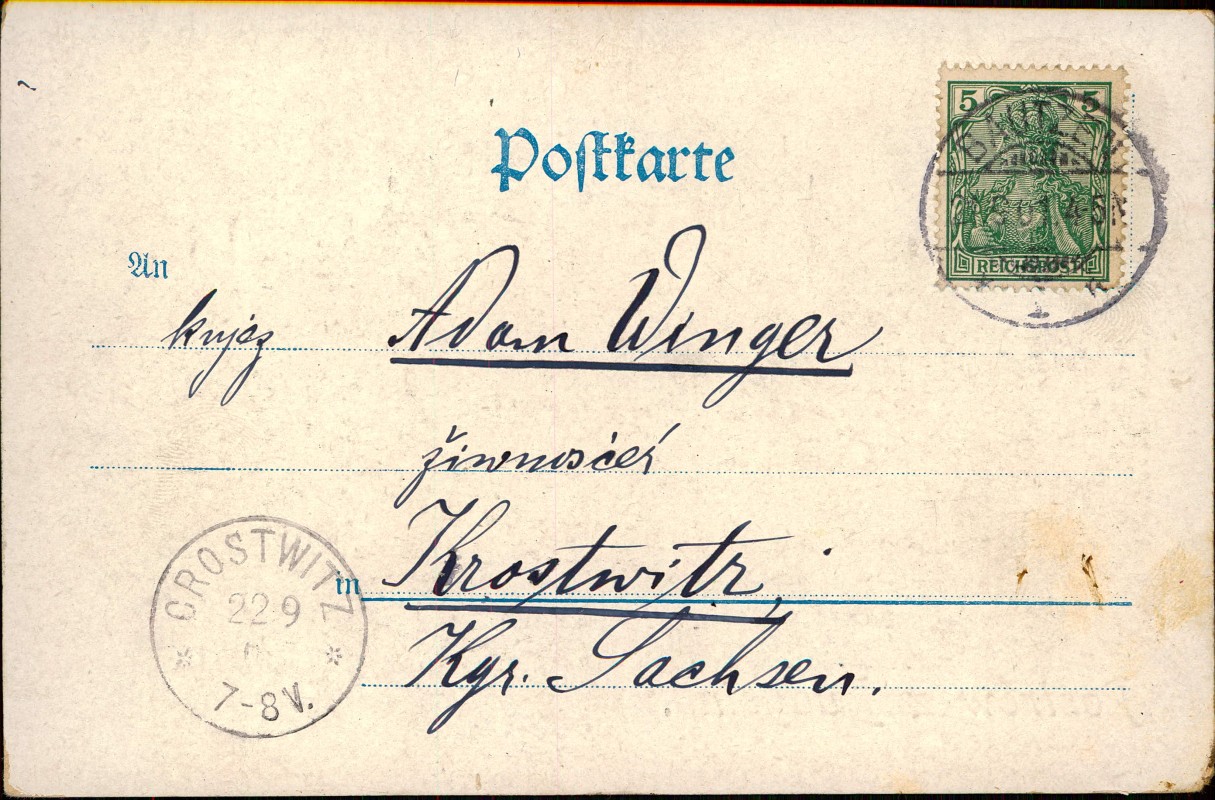 Postkarte
5 5
REICHSPOST
BAUTZEN
An
knjez Adam Winger
žiwnosćeŕ
in Krostwitz,
Kgr. Sachsen.
CROSTWITZ
22-9
7-8 V.